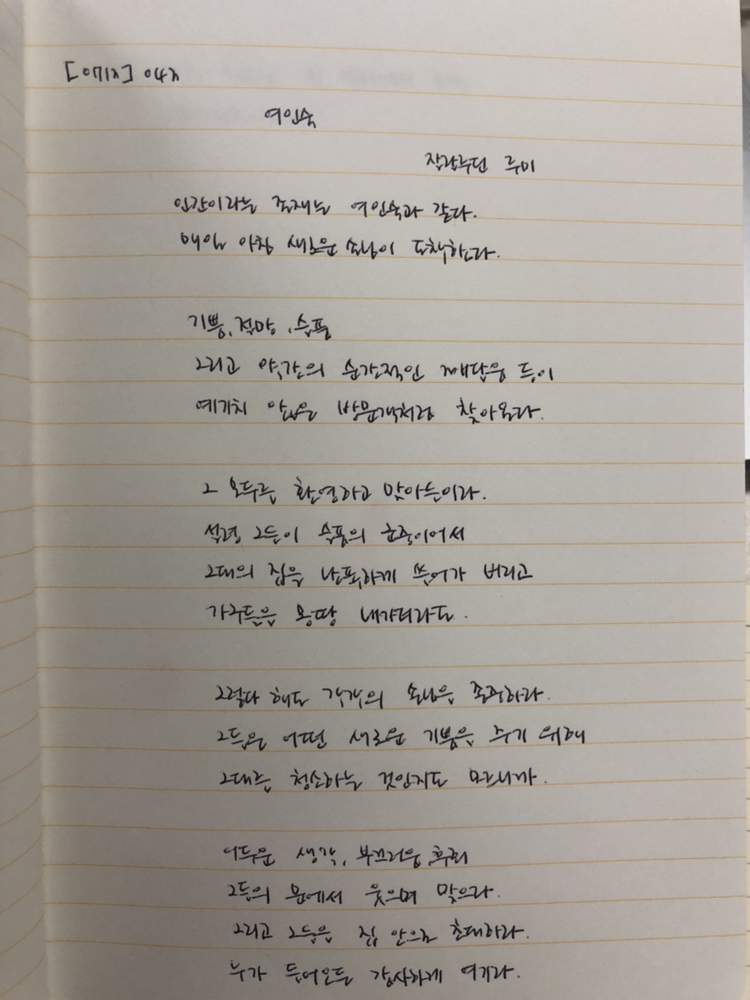 [071X] 04X
여인숙
잘랄루딘 루미
인간이라는 존재는 여인숙과 같다.
매일 아침 새로운 손님이 도착한다.
기쁨, 절망, 슬픔
그리고 약간의 순간적인 깨달음 등이
예기치 않은 방문객처럼 찾아온다.
그 모두를 환영하고 맞아들이라.
설령 그들이 슬픔의 군중이어서
그대의 집을 난폭하게 쓸어가 버리고
가구들을 몽땅 내가더라도.
그렇다 해도 각각의 손님을 존중하라.
그들은 어떤 새로운 기쁨을 주기 위해
그대를 청소하는 것인지도 모르니까.
어두운 생각, 부끄러움, 후회
그들의 문에서 웃으며 맞으라.
그리고 그들을 집 안으로 초대하라.
누가 들어오든 감사하게 여기라.